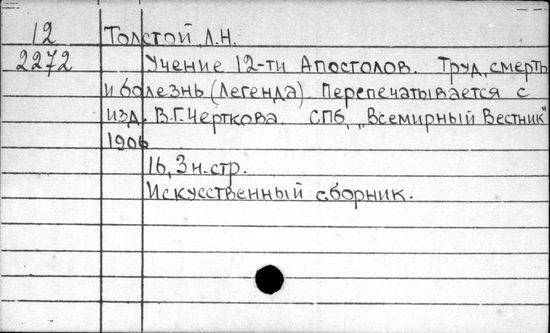 12 Толстой, Л.Н.
2272 Учение 12-ти Апостолов. Труд, смерть
и болезнь (Легенда) Перепечатывается с
изд. В.Г. Черткова. СПб, „Всемирный Вестник"
1906
16, 3 н.стр.
Искусственный сборник.